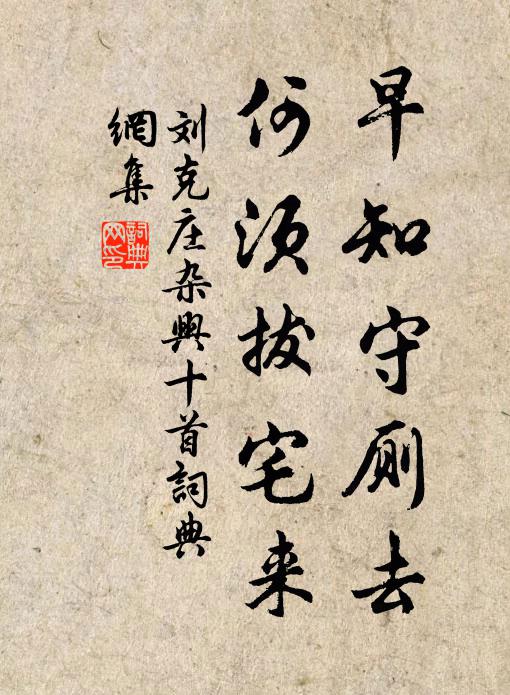 早知守厠去
何須拔宅来
刘克庄杂興十首詞典
網集
詞典
网印